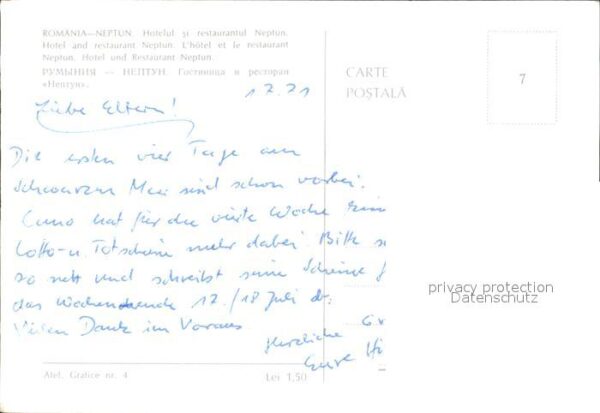 ROMANIA—NEPTUN. Hotelul și restaurantul Neptun.
Hotel and restaurant Neptun. L'hôtel et le restaurant
Neptun. Hotel und Restaurant Neptun.
РУМЫНИЯ — НЕПТУН. Гостиница и ресторан
«Нептун».
CARTE
POȘTALĂ
7
Liebe Eltern!
Die ersten vier Tage am
Schwarzen Meer sind schon vorbei.
Cuno hat für die vierte Woche
Lotto-u. Totoscheine mehr dabei. Bitte
so nett und schreibst seine Scheine
das Wochenende 17./18 Juli
Vielen Dank im Voraus
Herzliche
Eure
privacy protection
Datenschutz
Atel. Grafice nr. 4
Lei 1,50